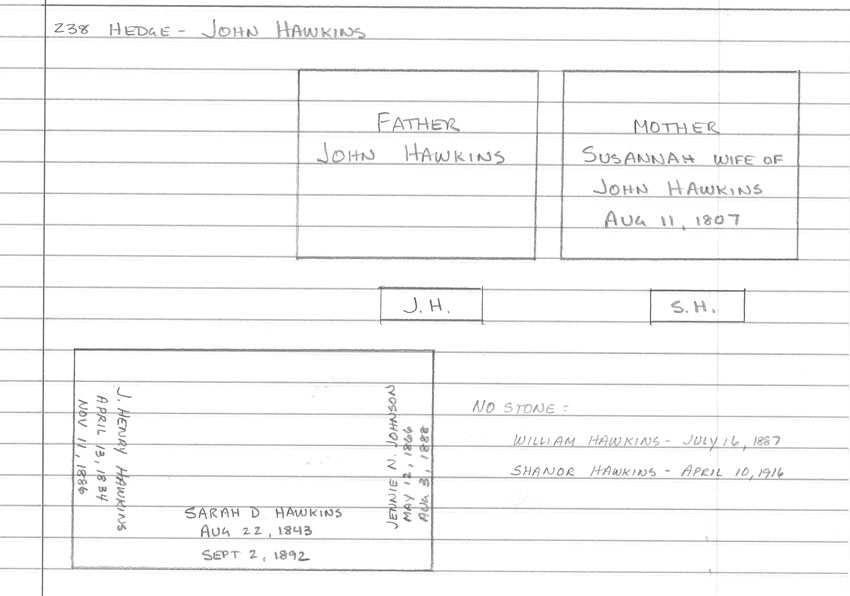 238 HEDGE - JOHN HAWKINS
FATHER
JOHN HAWKINS
MOTHER
SUSANNAH WIFE OF
JOHN HAWKINS
AUG 11, 1807
J. H.
S. H.
J. HENRY HAWKINS
APRIL 13, 1834
NOV 11, 1886
SARAH D. HAWKINS
AUG 22, 1843
SEPT 2, 1892
JENNIE N. JOHNSON
MAY 12, 1866
AUG 3, 1888
NO STONE =
WILLIAM HAWKINS - JULY 16, 1887
SHANOR HAWKINS - APRIL 10, 1916